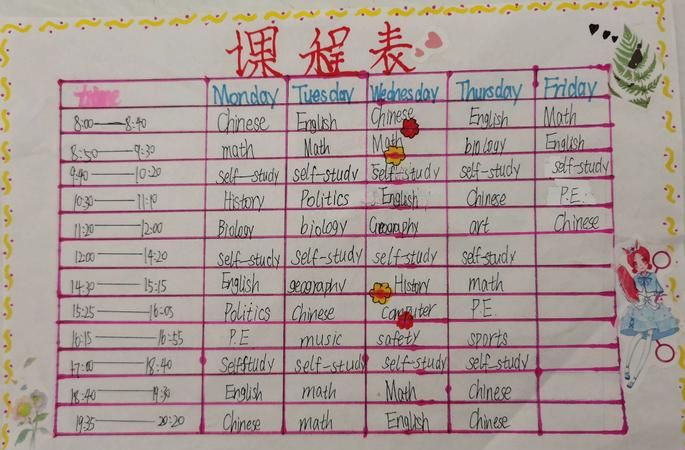 课程表
time Monday Tuesday Wednesday Thursday Friday
8:00——8:40 Chinese English Chinese English Math
8:50——9:30 math Math Math biology English
9:40——10:20 self-study self-study self-study self-study self-study
10:30——11:10 History Politics English Chinese P.E.
11:20——12:00 Biology biology Geography art Chinese
12:00——14:20 self-study self-study self-study self-study
14:30——15:15 English geography History math
15:25——16:05 Politics Chinese computer P.E.
16:15——16:55 P.E music safety sports
17:00——18:40 Selfstudy self-study self-study self-study
18:40——19:30 English math Math Chinese
19:35——20:20 Chinese math English Chinese